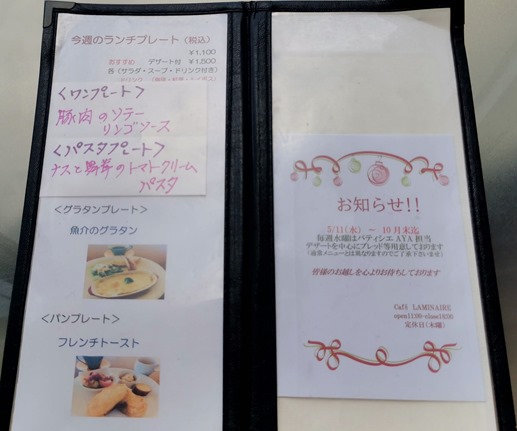 今週のランチプレート（税込）
￥1,100
おすすめ デザート付 ￥1,500
各（サラダ・スープ・ドリンク付き）
＜ワンプレート＞
豚肉のソテー
リンゴソース
＜パスタプレート＞
ナスと野菜のトマトクリーム
パスタ
＜グラタンプレート＞
魚介のグラタン
＜パンプレート＞
フレンチトースト
お知らせ!!
5/11（水） ～ 10月末迄
毎週水曜はパティシエ AYA 担当
デザートを中心にブレッド等用意しております
（通常メニューとは異なりますのでご了承下さいませ）
皆様のお越しを心よりお待ちしております
Café LAMINAIRE
open11:00-close16:00
定休日（木曜）